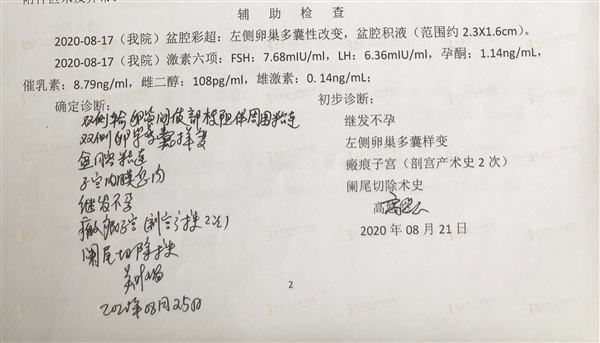 辅 助 检 查
2020-08-17（我院）盆腔彩超：左侧卵巢多囊性改变，盆腔积液（范围约 2.3X1.6cm）。
2020-08-17（我院）激素六项：FSH：7.68mIU/ml，LH：6.36mIU/ml，孕酮：1.14ng/mL，
催乳素：8.79ng/ml，雌二醇：108pg/ml，雄激素：0.14ng/mL；
确定诊断：
双侧输卵管间质部梗阻伴周围粘连
双侧卵巢囊样变
盆腔粘连
子宫内膜息肉
继发不孕
瘢痕子宫（剖宫产史2次）
阑尾切除术史
2020年08月25日
初步诊断：
继发不孕
左侧卵巢多囊样变
瘢痕子宫（剖宫产术史 2 次）
阑尾切除术史
高
2020 年 08 月 21 日
2